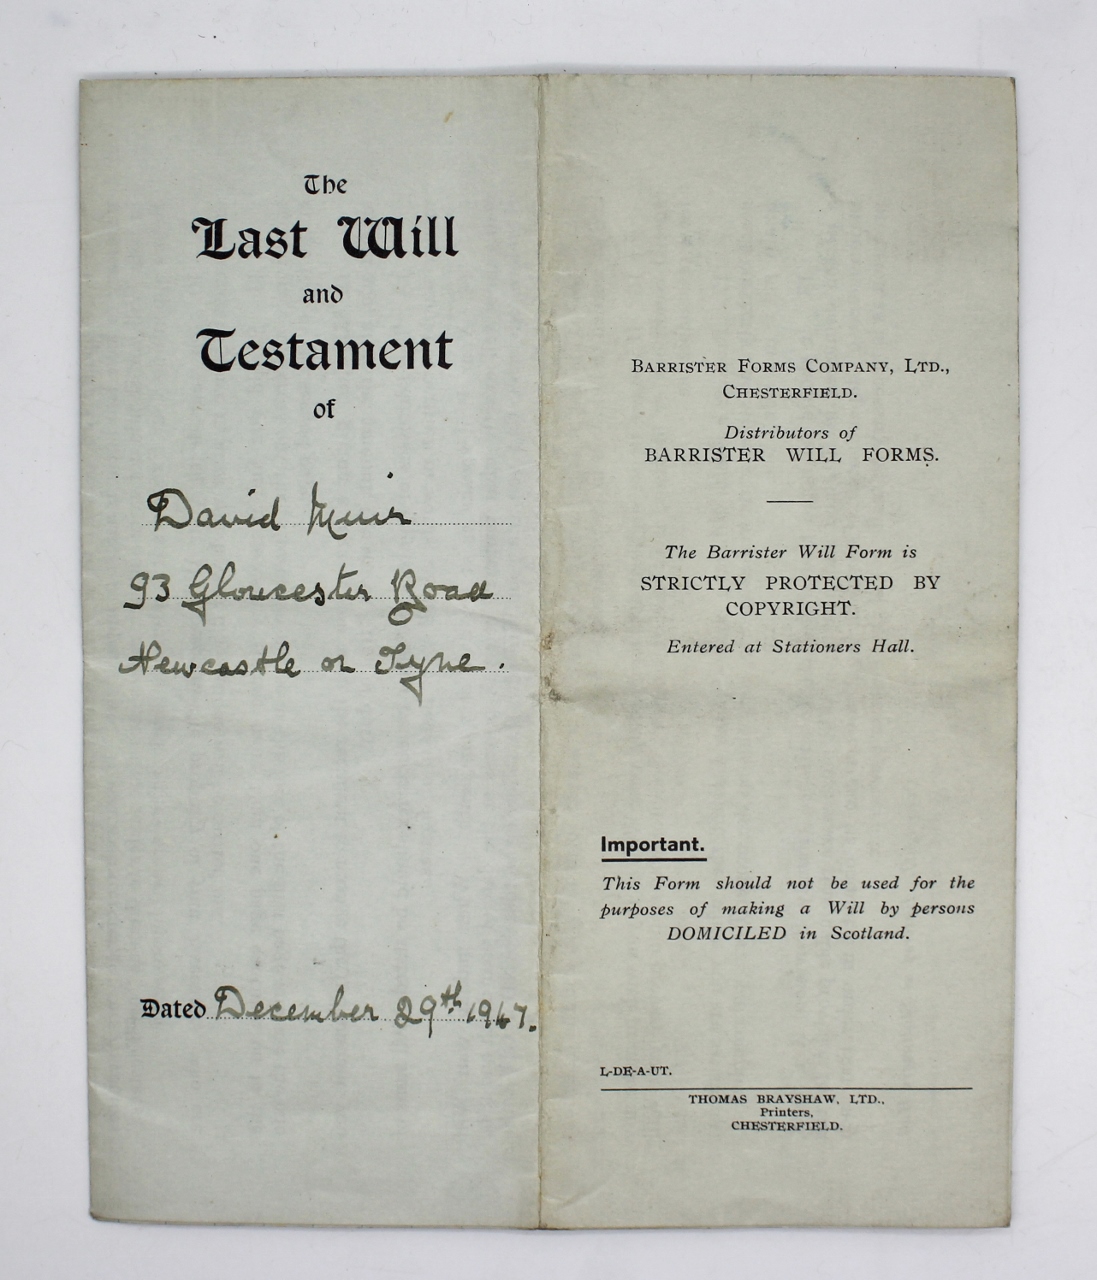 The
Last Will
and
Testament
of
David Muir
93 Gloucester Road
Newcastle on Tyne.
Dated December 29th 1947.
BARRISTER FORMS COMPANY, LTD.,
CHESTERFIELD.
Distributors of
BARRISTER WILL FORMS.
The Barrister Will Form is
STRICTLY PROTECTED BY
COPYRIGHT.
Entered at Stationers Hall.
Important.
This Form should not be used for the
purposes of making a Will by persons
DOMICILED in Scotland.
L-DE-A-UT.
THOMAS BRAYSHAW, LTD.,
Printers,
CHESTERFIELD.